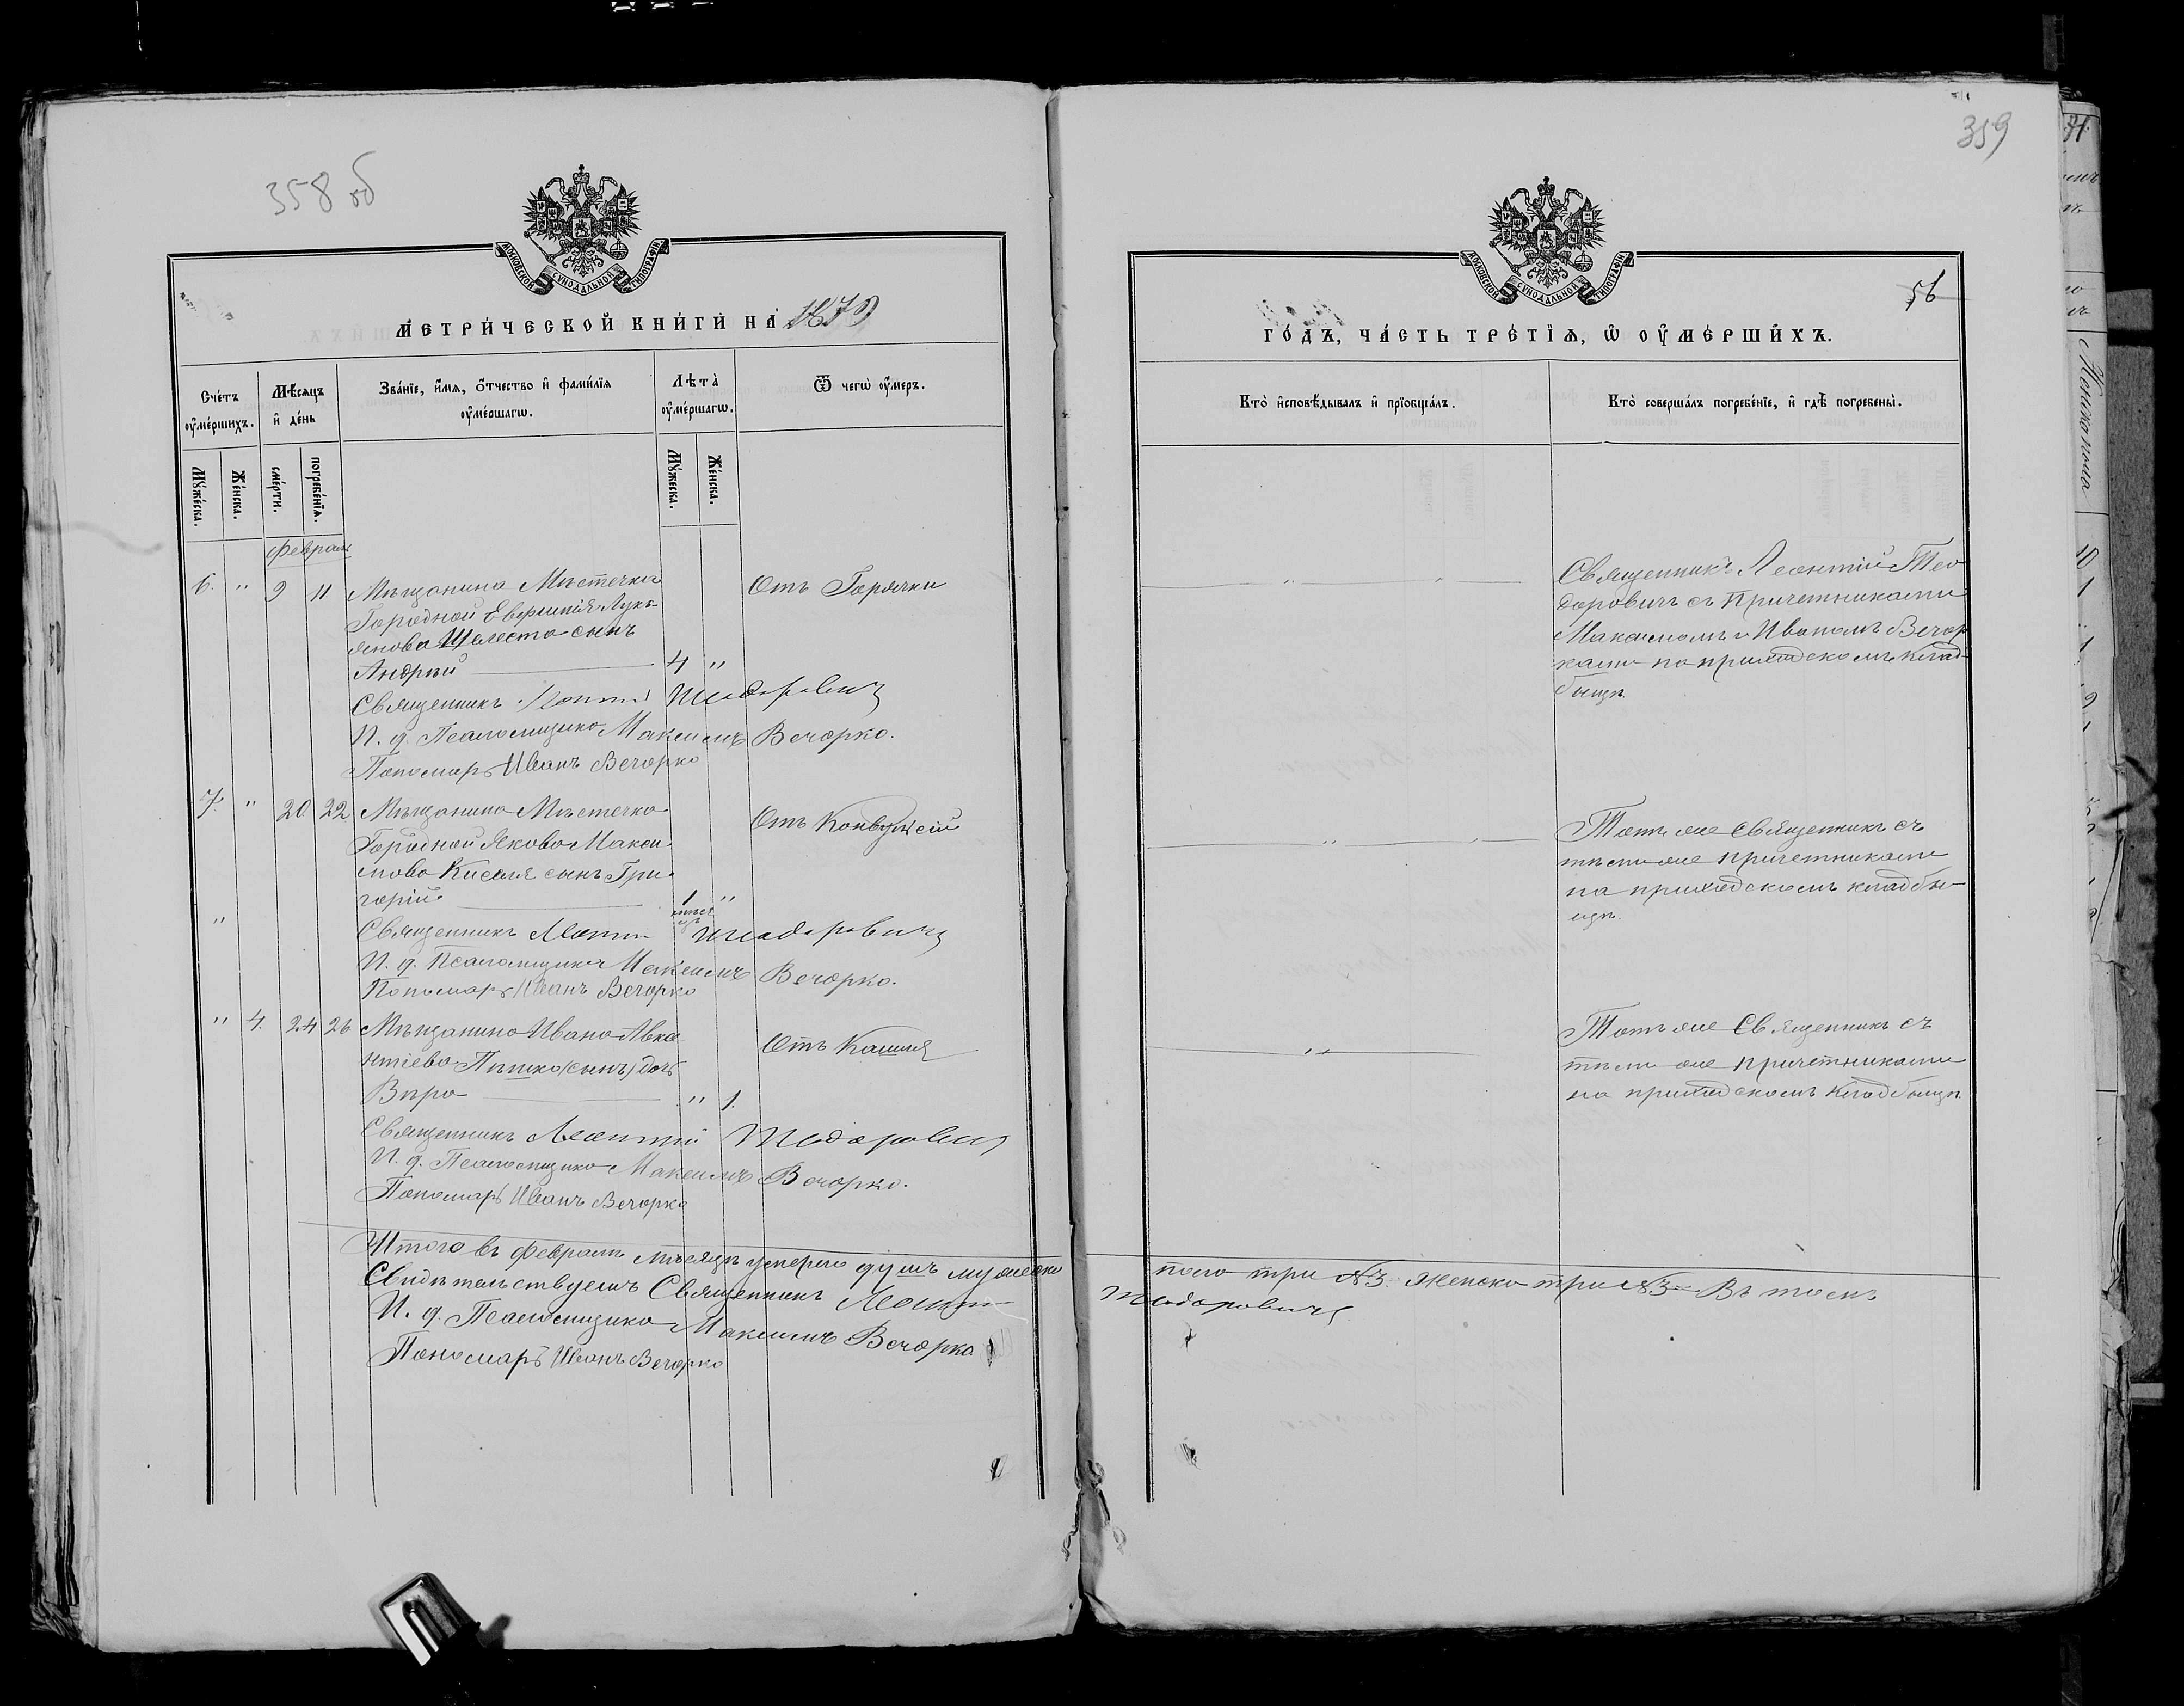 358 об
МОСКОВСКОЙ СУНОДАЛЬНОЙ ТИПОГРАФІИ
МЕТРИЧЕСКОЙ КНИГИ НА 1879
Счетъ оумершихъ.
Мѣсяцъ и день
Званіе, имя, отчество и фамилія оумершагѡ.
Лѣта оумершагѡ.
Ѿ чегѡ оумеръ.
Мужеска.
Женска.
смерти.
погребенія.
Мужеска.
Женска.
Февраль
6. " 9 11 Мѣщанина Мѣстечка Отъ Горячки
Городной Евфимія Лукь-
янова Шелеста сынъ
Андрей 4 "
Священникъ Леонтій Теодоровичъ
И. д. Псаломщика Максимъ Вечорко.
Пономарь Иванъ Вечорко
7. " 20 22 Мѣщанина Мѣстечка Отъ Конвульсій
Городной Якова Макси-
мова Киселя сынъ Гри-
горій 1 "
мѣся
цъ
" Священникъ Леонтій Теодоровичъ
И. д. Псаломщика Максимъ Вечорко.
Пономарь Иванъ Вечорко
" 4. 24 26 Мѣщанина Ивана Авкс- Отъ Кашля
нтіева Пѣшко (сынъ) дочь
Вѣра " 1.
Священникъ Леонтій Теодоровичъ
И. д. Псаломщика Максимъ Вечорко.
Пономарь Иванъ Вечорко
Итого въ Февралѣ мѣсяцѣ умерло душъ мужеска
Свидѣтельствуемъ Священникъ Леонтій
И. д. Псаломщика Максимъ Вечорко
Пономарь Иванъ Вечорко
359
МОСКОВСКОЙ СУНОДАЛЬНОЙ ТИПОГРАФІИ
56
ГОДЪ, ЧАСТЬ ТРЕТІЯ, Ѡ ОУМЕРШИХЪ.
Кто исповѣдывалъ и пріобщалъ.
Кто совершалъ погребеніе, и гдѣ погребены.
" Священникъ Леонтій Тео
доровичъ съ Причетниками
Максимомъ и Иваномъ Вечор
ками на приходскомъ клад-
бищѣ.
" Тотъ же Священникъ съ
тѣми же причетниками
на приходскомъ кладби-
щѣ.
" Тотъ же Священникъ съ
тѣми же причетниками
на приходскомъ кладбищѣ
пола три №3. Женска три №3 Въ томъ
Теодоровичъ